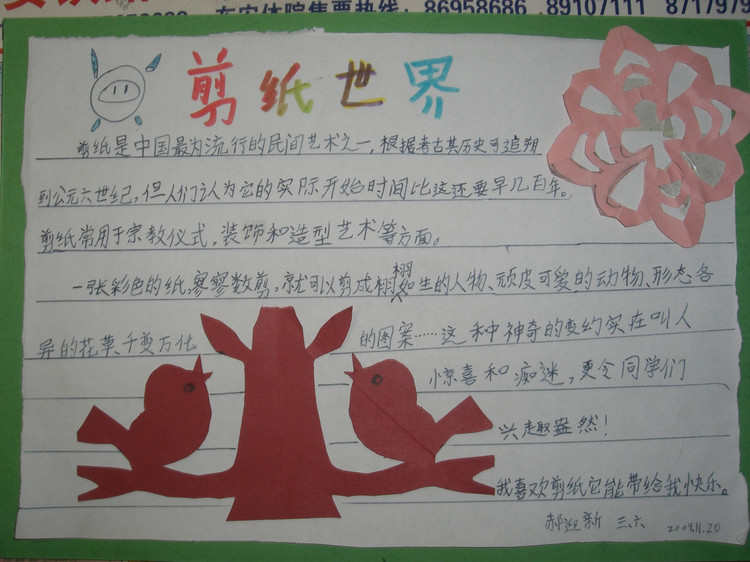 东安体院售票热线：86958686 89107111 8717979
剪纸世界
剪纸是中国最为流行的民间艺术之一，根据考古其历史可追朔
到公元六世纪，但人们认为它的实际开始时间比这还要早几百年。
剪纸常用于宗教仪式，装饰和造型艺术等方面。
一张彩色的纸，寥寥数剪，就可以剪成栩栩如生的人物、顽皮可爱的动物、形态各
异的花草、千变万化的图案……这种神奇的变幻实在叫人
惊喜和痴迷，更令同学们
兴趣盎然！
我喜欢剪纸它能带给我快乐。
郝迎新 三.六 2009.11.20